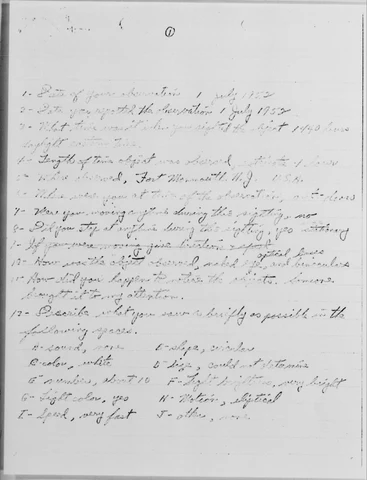 ①
1- Date of your observation 1 July 1952
2- Date you reported the observation 1 July 1952
3- What time was it when you sighted the object 1440 hours
daylight eastern time.
4- Length of time object was observed, hours
5- Where observed, Fort Monmouth N.J. U.S.A.
6- Where were you at time of the observation, out-doors
7- Were you moving during this sighting, no
8- Did you stop at anytime during this sighting, yes stationary
9- If you were moving give direction & speed
10- How was the object observed, naked eye, and binoculars
optical lens
11- How did you happen to notice the objects. Someone
brought it to my attention.
12- Describe what you saw as briefly as possible in the
following spaces.
A- sound, none E- shape, circular
B- color, white D- size, could not determine
E- numbers, about 10 F- Light brightness, very bright
G- Light color, yes H- Motion, elliptical
I- Speed, very fast J- other, none